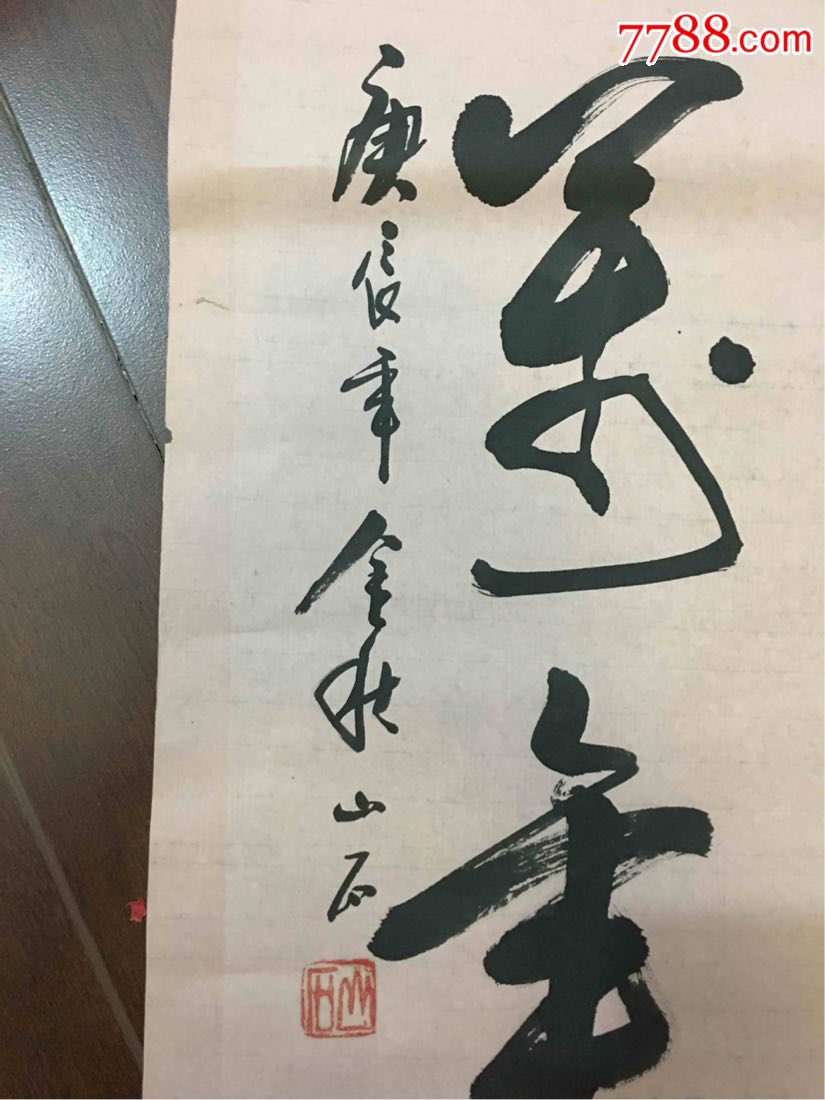 7788.com
萬年
庚辰年金秋山石
山石